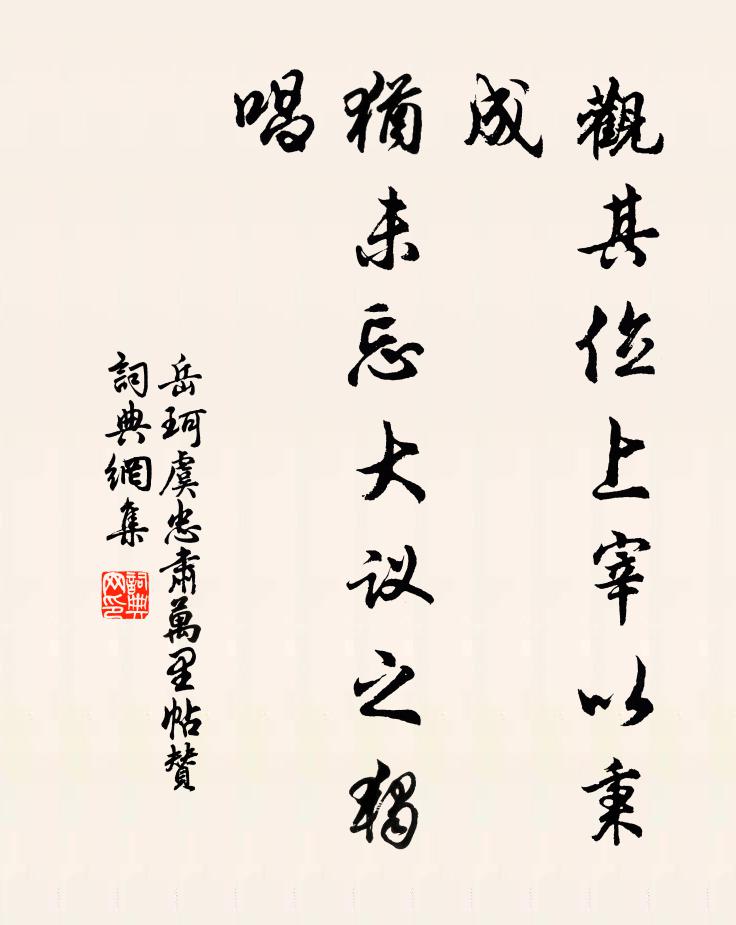 觀其位上宰以秉
成
猶未忘大议之獨
唱
岳珂虞忠肅萬里帖贊
詞典網集
詞典网印